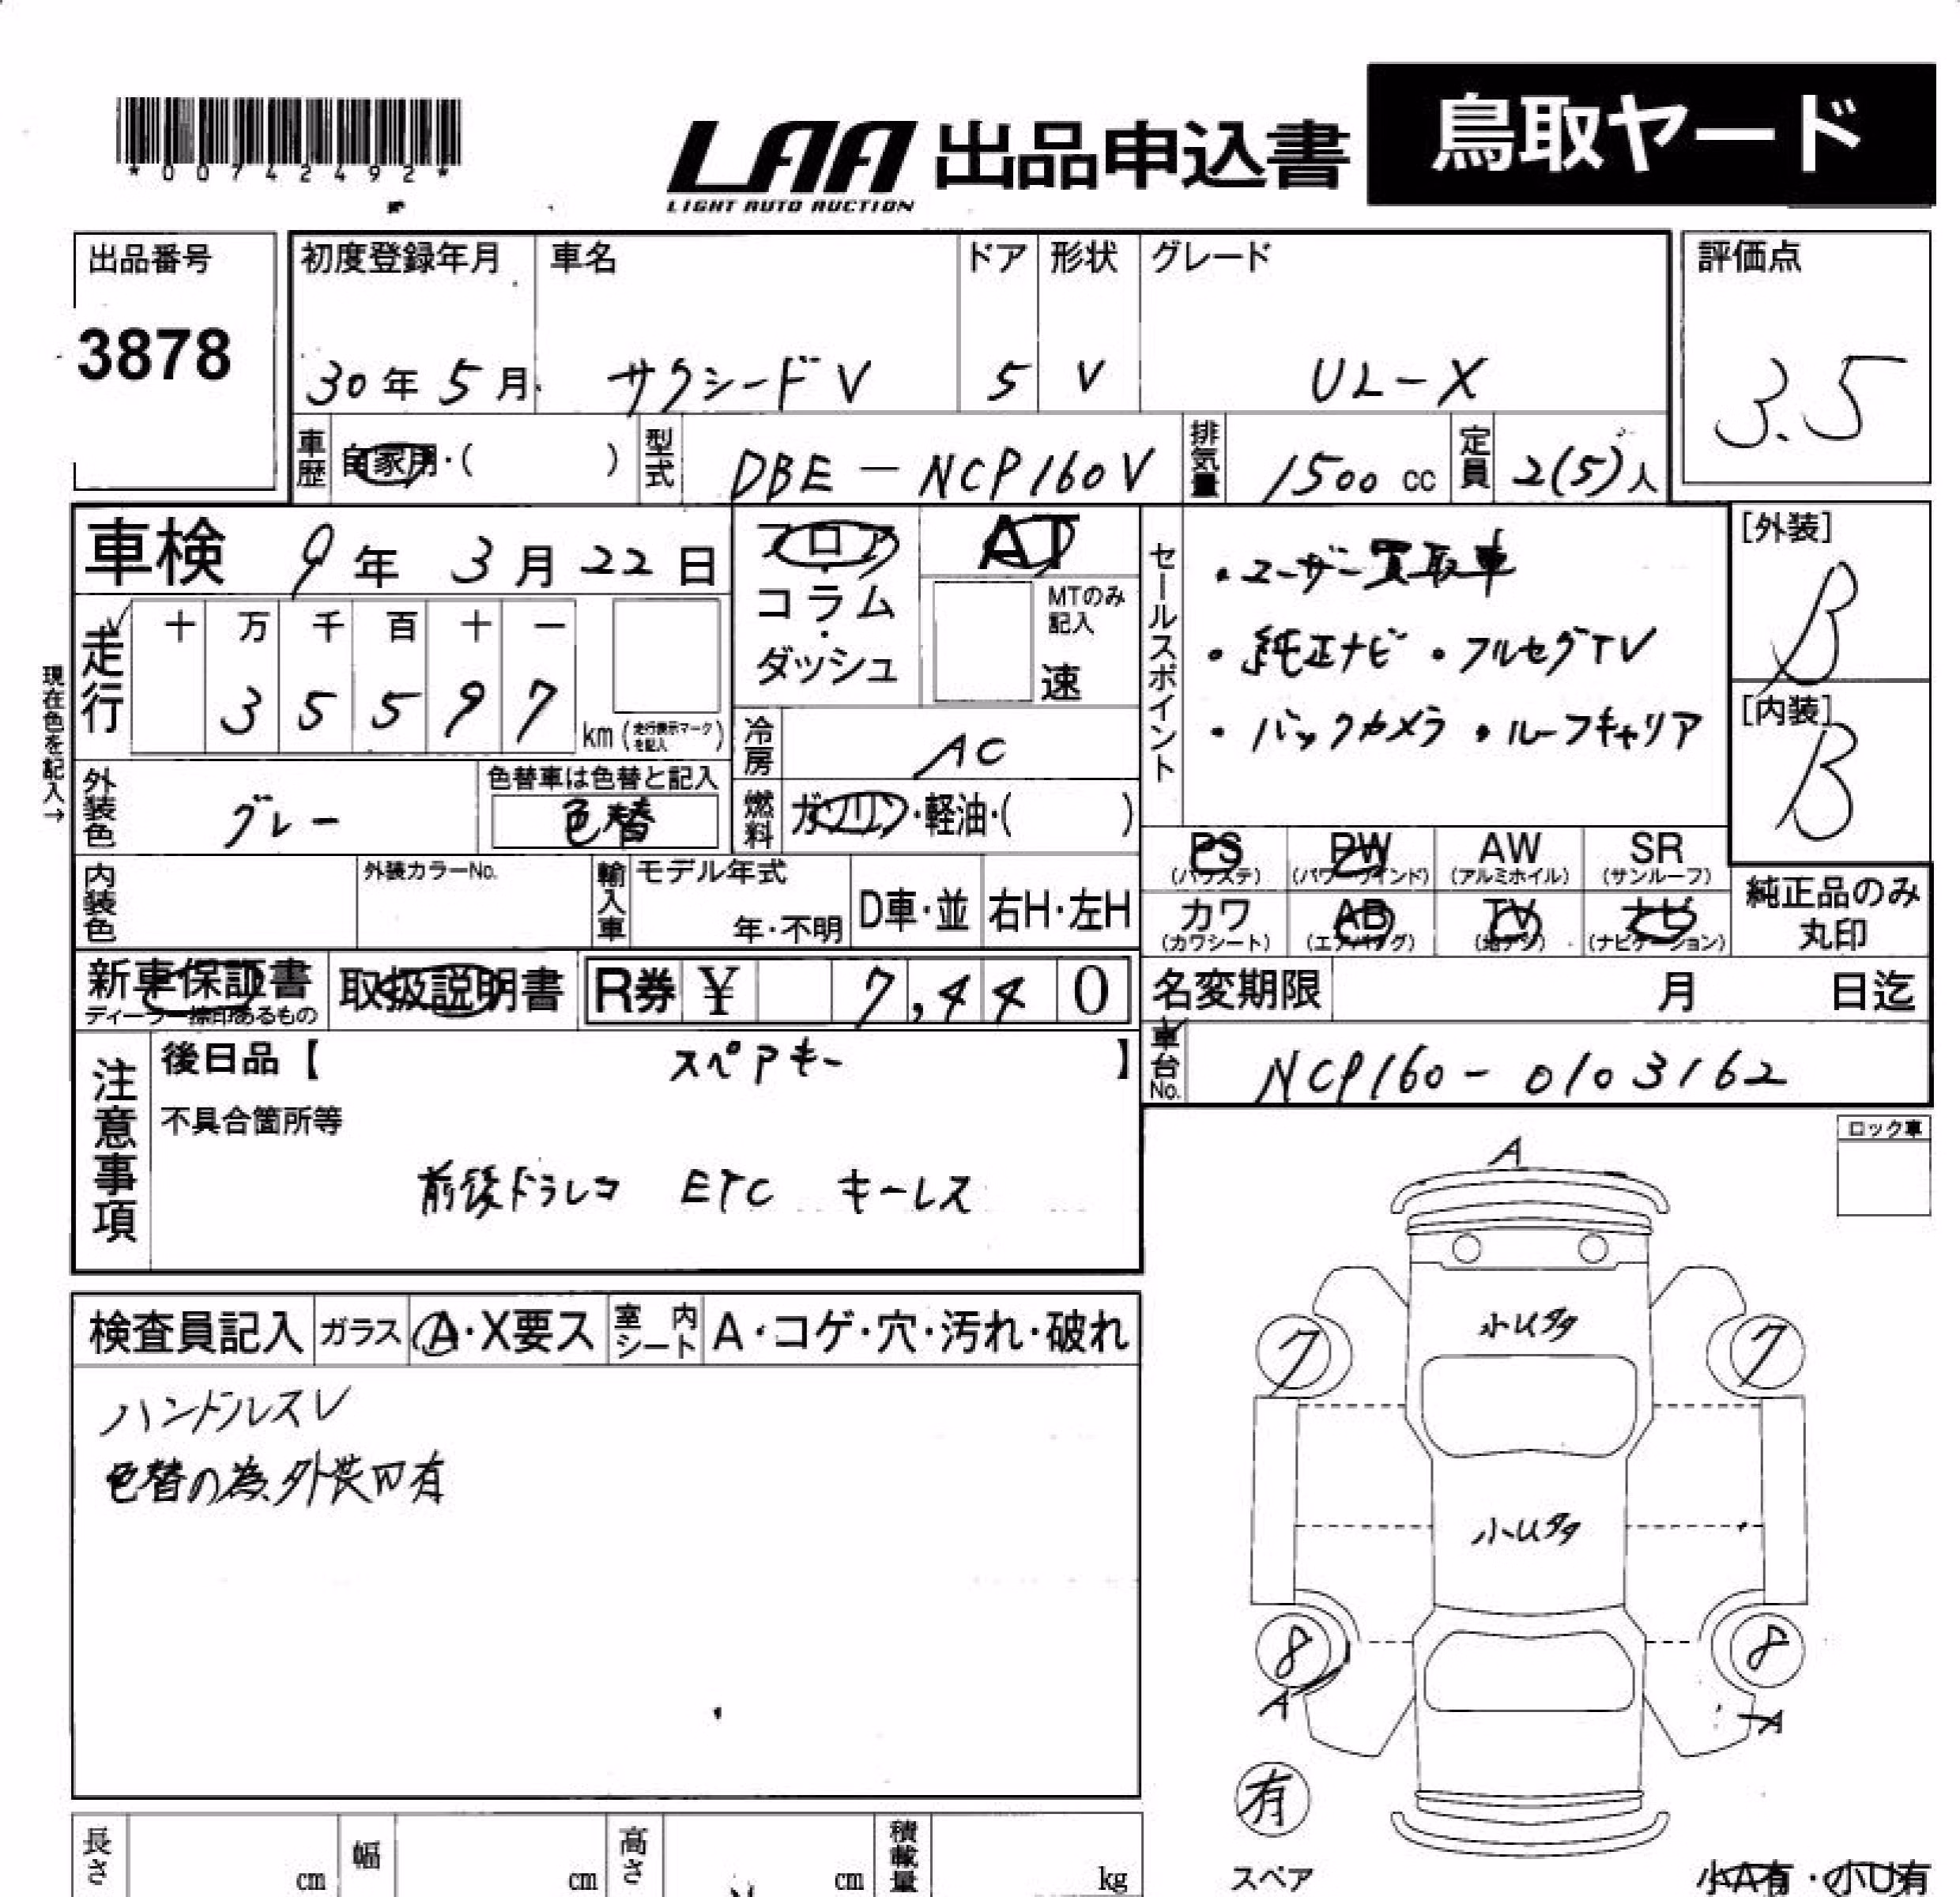 *00742492*
LAA 出品申込書 鳥取ヤード
LIGHT AUTO AUCTION
出品番号 初度登録年月 車名 ドア 形状 グレード 評価点
3878 30年5月 サクシードV 5 V UL-X 3.5
車歴 自家用・( ) 型式 DBE-NCP160V 排気量 1500cc 定員 2(5)人
車検 9年3月22日 フロア・コラム・ダッシュ AT
MTのみ記入 速
現在色を記入→
走行 十 万 千 百 十 一
3 5 5 9 7 km (走行表示マークを記入)
冷房 AC
外装色 グレー 色替車は色替と記入 色替
燃料 ガソリン・軽油・( )
内装色 外装カラーNo. 輸入車 モデル年式 年・不明 D車・並 右H・左H
新車保証書 ディーラー捺印あるもの 取扱説明書 R券 ¥ 7,440
セールスポイント
・ユーザー買取車
・純正ナビ ・フルセグTV
・バックカメラ ・ルーフキャリア
[外装] B
[内装] B
PS (パワステ) PW (パワーウインド) AW (アルミホイル) SR (サンルーフ)
カワ (カワシート) AB (エアバッグ) TV (地デジ) ナビ (ナビゲーション)
純正品のみ丸印
名変期限 月 日迄
車台No. NCP160-0103162
注意事項
後日品【 スペアキー 】
不具合箇所等
前後ドラレコ ETC キーレス
ロック車
検査員記入 ガラス A・X要ス 室内シート A・コゲ・穴・汚れ・破れ
ハンドルスレ
色替の為、外装凹有
A
小Uタタ
7 7
小Uタタ
8 8
A A
有
スペア
小A有・小U有
長さ cm 幅 cm 高さ cm 積載量 kg